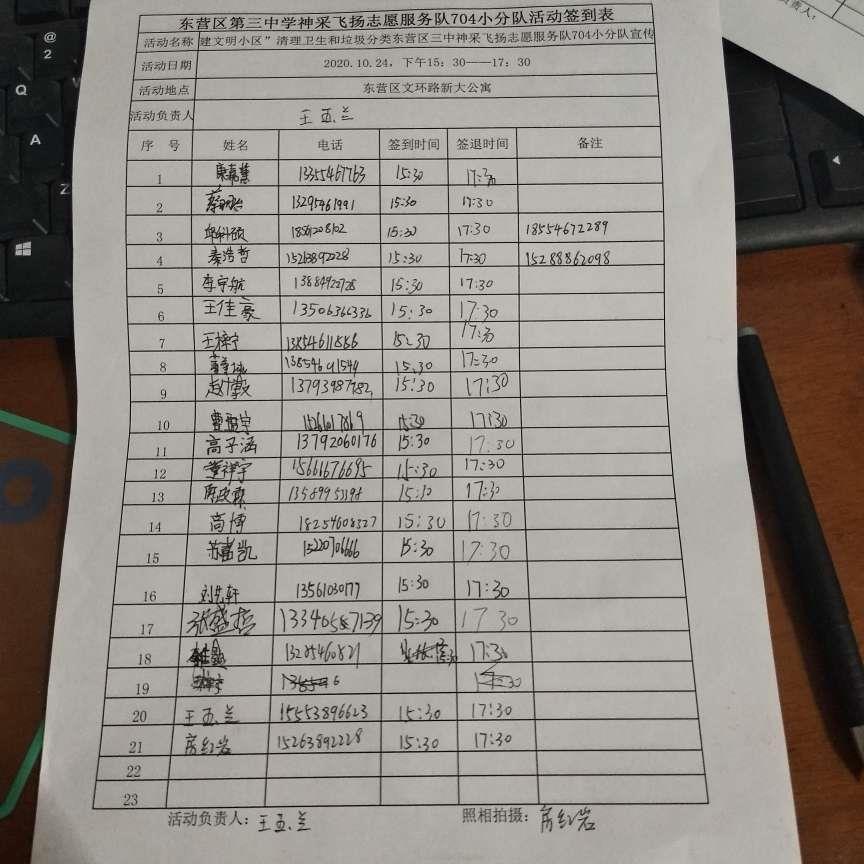 东营区第三中学神采飞扬志愿服务队704小分队活动签到表
活动名称 建文明小区”清理卫生和垃圾分类东营区三中神采飞扬志愿服务队704小分队宣传
活动日期 2020.10.24，下午15：30——17：30
活动地点 东营区文环路新大公寓
活动负责人 王玉兰
序 号 姓名 电话 签到时间 签退时间 备注
1 康嘉慧 13355467763 15:30 17:30
2 13295461991 15:30 17:30
3 15:30 17:30 18554672289
4 秦浩哲 15263892228 15:30 17:30 15288862098
5 李宇航 15:30 17:30
6 王佳豪 13506366336 15:30 17:30
7 王梓宁 13854611886 15:30 17:30
8 15:30 17:30
9 15:30 17:30
10 15:30 17:30
11 高子涵 13792060176 15:30 17:30
12 董祥宇 15661676695 15:30 17:30
13 15:30 17:30
14 高博 18254608327 15:30 17:30
15 苏嘉凯 15:30 17:30
16 刘先轩 13561030177 15:30 17:30
17 张盛哲 15:30 17 30
18 13285460821 15:30 17:30
19
20 王玉兰 15553896623 15:30 17:30
21 房红岩 15263892228 15:30 17:30
22
23
活动负责人：王玉兰 照相拍摄：房红岩